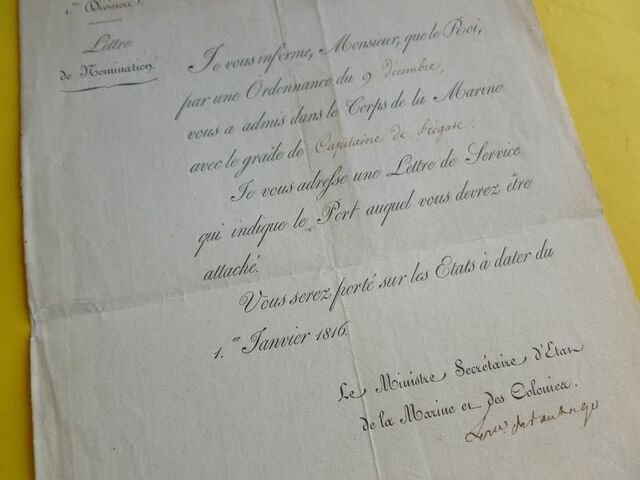 1.re Division.
Lettre
de Nomination.
Je vous informe, Monsieur, que le Roi,
par une Ordonnance du 9 décembre,
vous a admis dans le Corps de la Marine
avec le grade de Capitaine de frégate.
Je vous adresse une Lettre de Service
qui indique le Port auquel vous devrez être
attaché.
Vous serez porté sur les Etats à dater du
1.er Janvier 1816.
Le Ministre Secrétaire d'Etat
de la Marine et des Colonies.